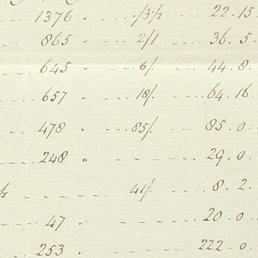 1376 " ... ./3½ ... 22.15.
865 ... 2/1 ... 36.5.
645 " ... 6/. ... 44.8.
657 " ... 18/. ... 64.16.
478 " ... 85/. ... 85.0.
248 " ... 29.0.
41/. ... 8.2.
47 ... 20.0.
253 ... 222.0.